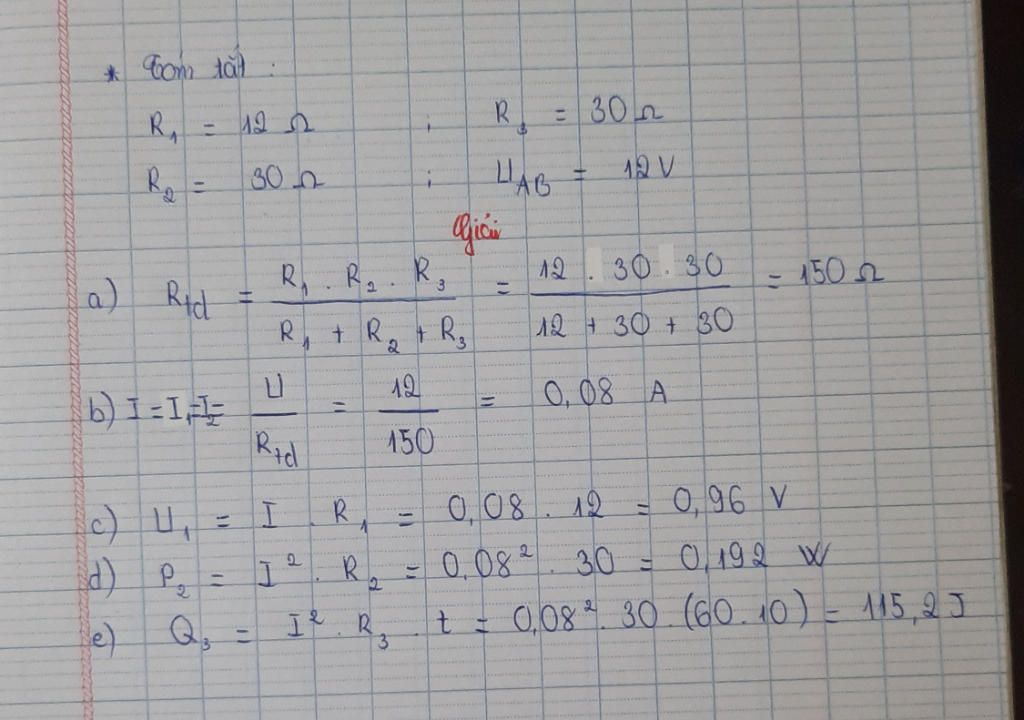 * Tóm tắt :
R₁ = 12 Ω ; R₃ = 30 Ω
R₂ = 30 Ω ; U_AB = 12 V
Giải
a) Rtđ = (R₁ . R₂ . R₃) / (R₁ + R₂ + R₃) = (12 . 30 . 30) / (12 + 30 + 30) = 150 Ω
b) I = I₁ = I₂ = U / Rtđ = 12 / 150 = 0,08 A
c) U₁ = I . R₁ = 0,08 . 12 = 0,96 V
d) P₂ = I² . R₂ = 0,08² . 30 = 0,192 W
e) Q₃ = I² . R₃ . t = 0,08² . 30 . (60 . 10) = 115,2 J